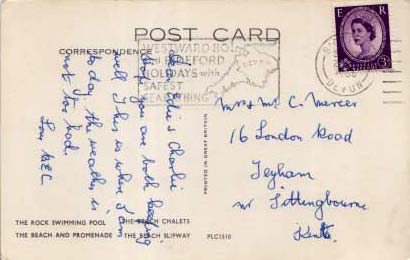 POST CARD
CORRESPONDENCE
WESTWARD HO!
and BIDEFORD
HOLIDAYS with
SAFEST
SEA BATHING
DEVON
E R
3D
DEVON
Edie & Charlie
hope you are both keeping
well this is where I am
today. the weather is
not too bad.
Mrs & Mr C. Mercer
16 London Road
Teyham
nr Sittingbourne
Kent
PRINTED IN GREAT BRITAIN
THE ROCK SWIMMING POOL THE BEACH CHALETS
THE BEACH AND PROMENADE THE BEACH SLIPWAY PLC1510